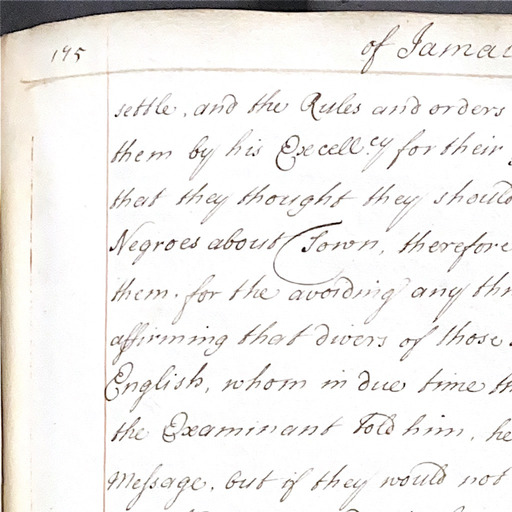 195
of Jamai
settle, and the Rules and orders
them by his Excell.cy for their
that they thought they should
Negroes about Town, therefore
them. for the avoiding any thr
affirming that divers of those
English, whom in due time th
the Examinant Told him, he
Message, but if they would not